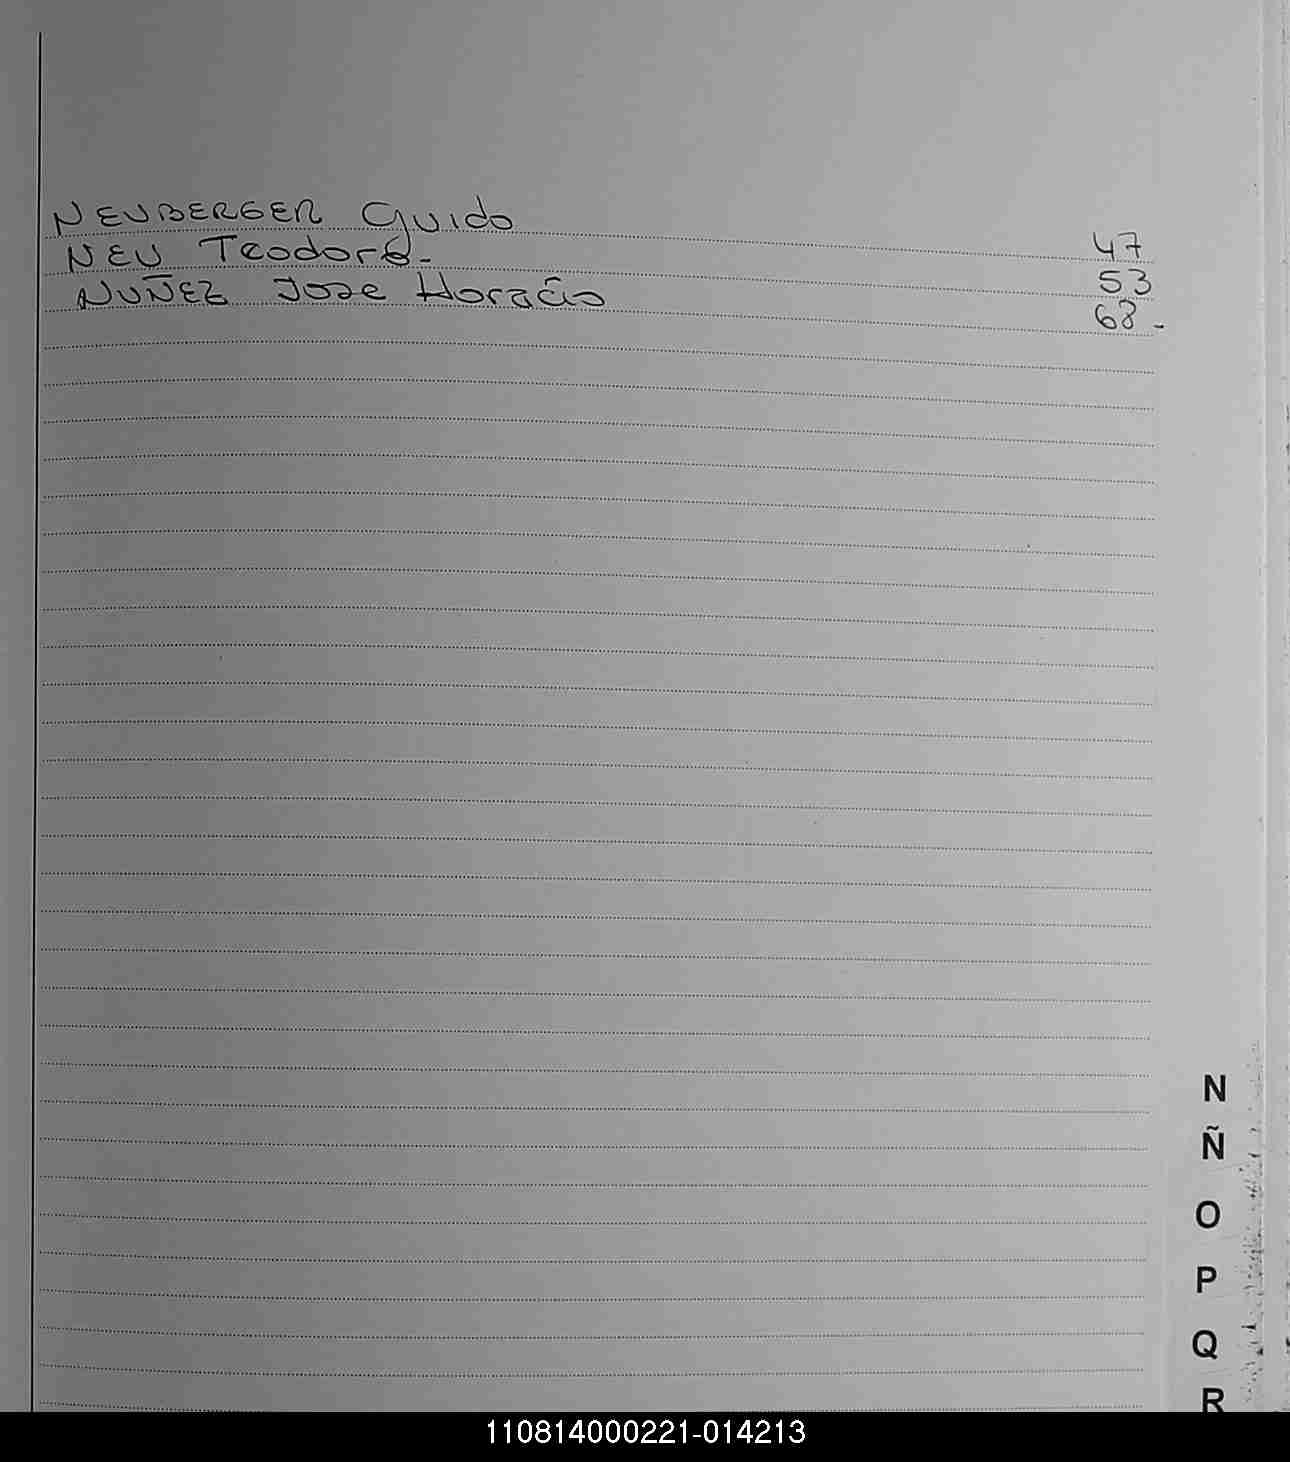 NEUBERGER Guido 47
NEU Teodoro. 53
NUÑEZ Jose Horacio 68.
N
Ñ
O
P
Q
R
110814000221-014213